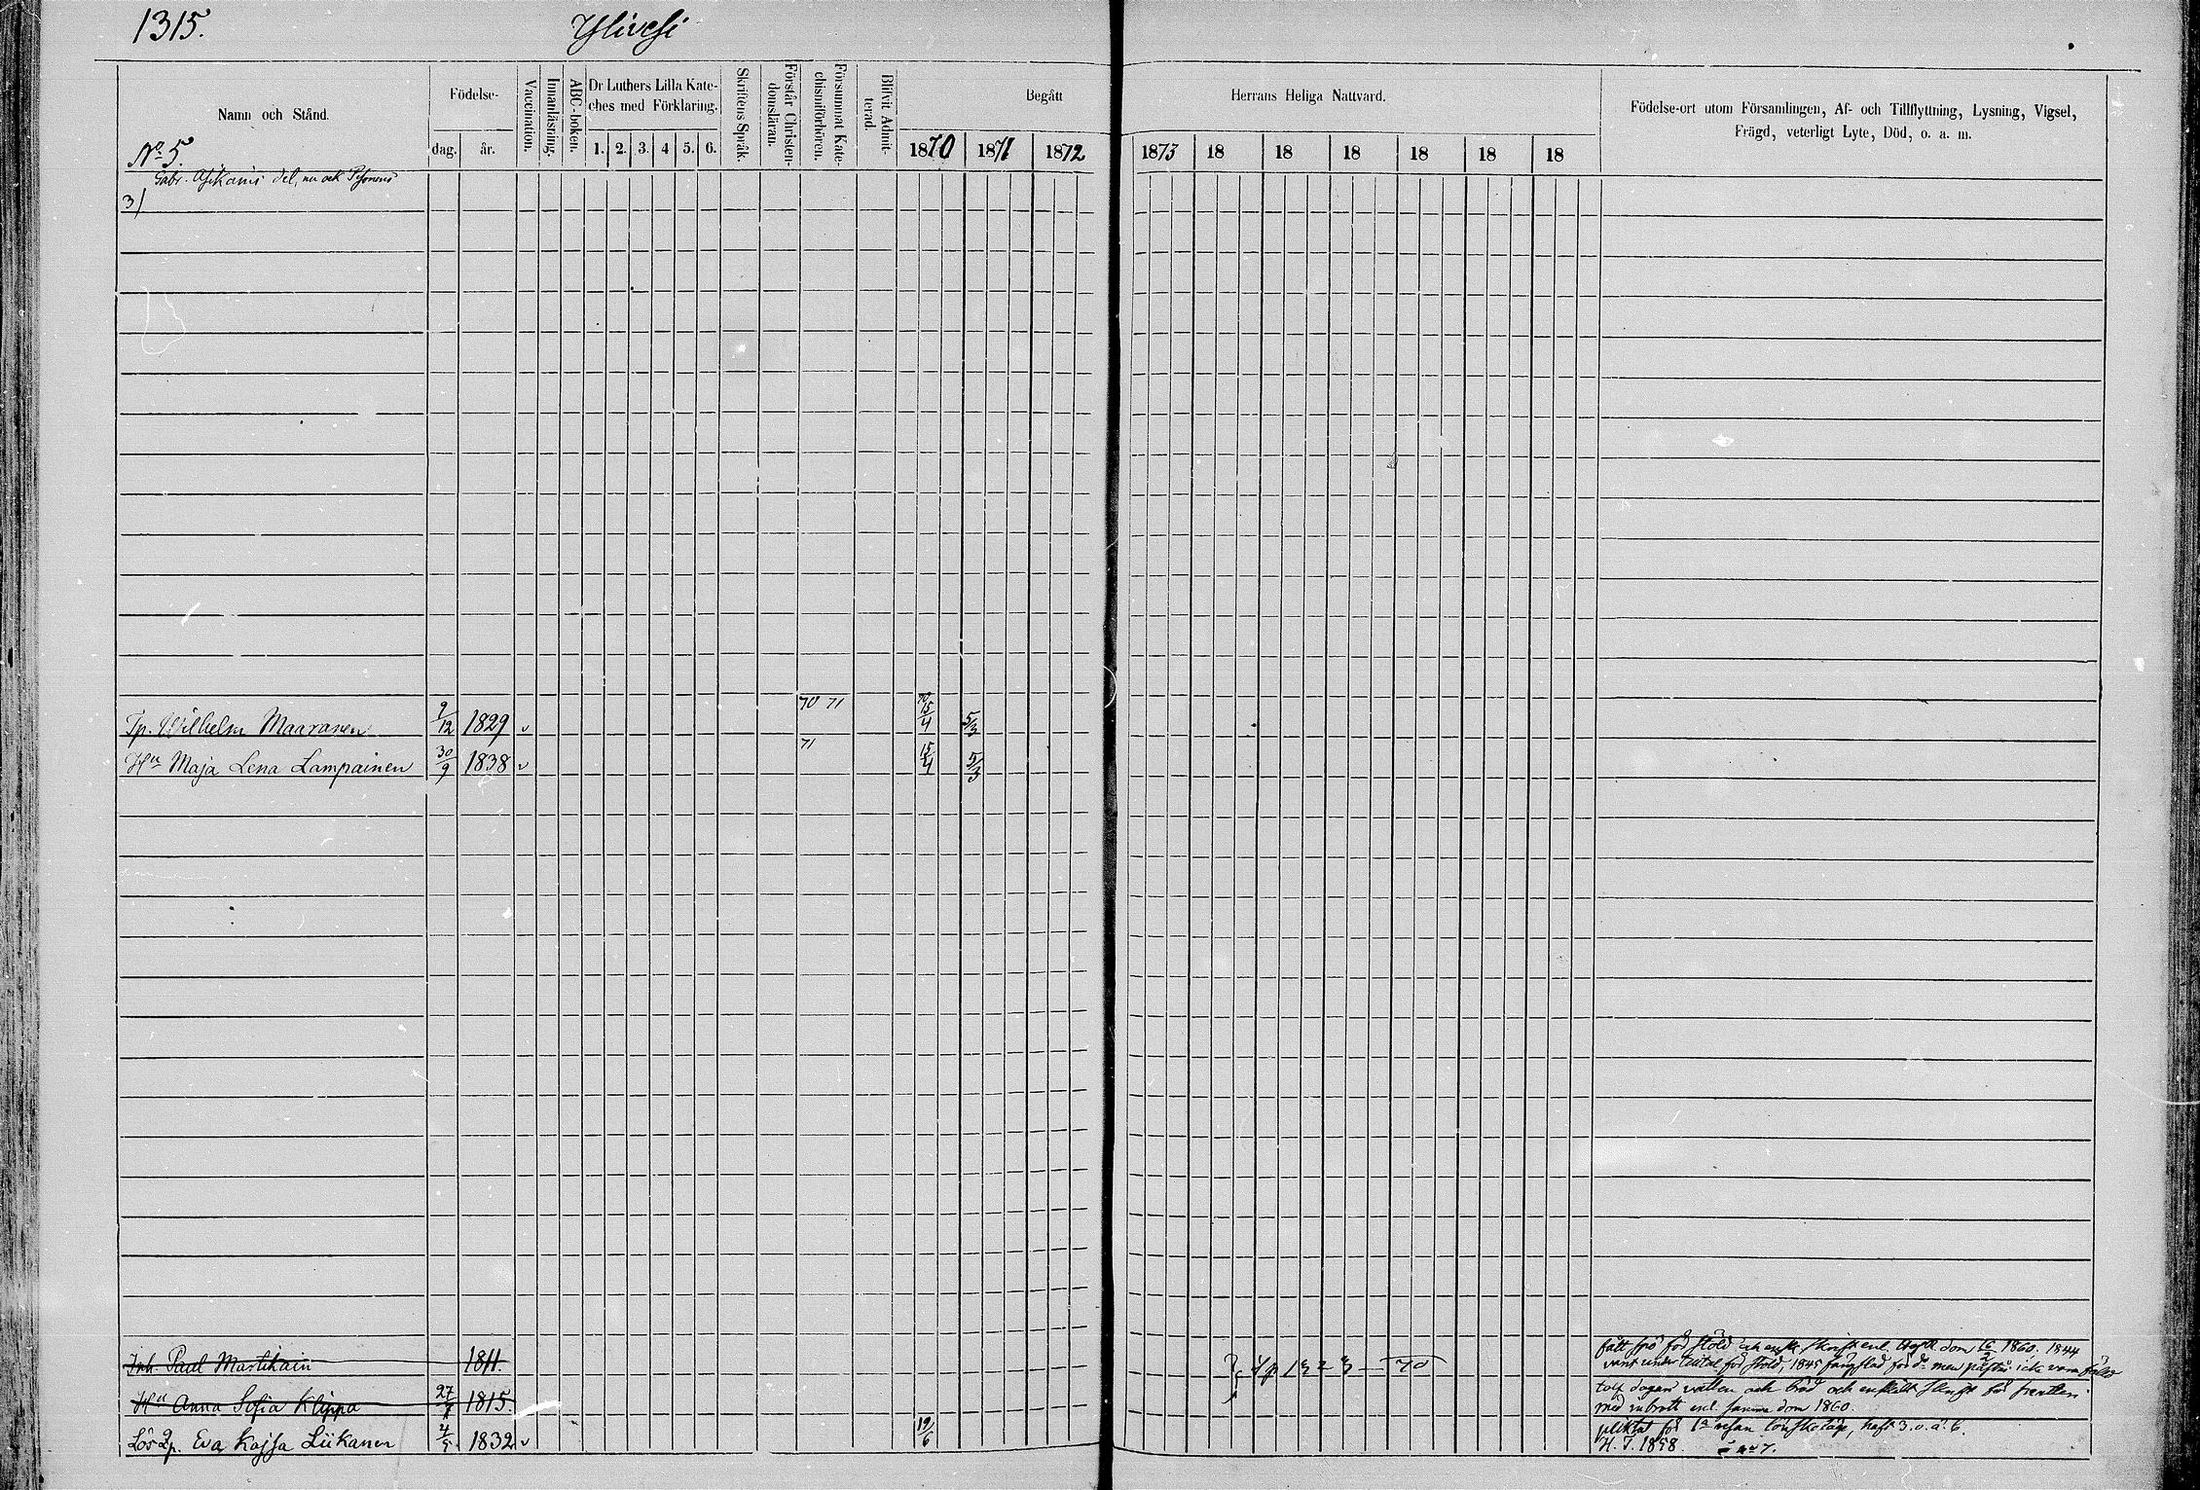 1315.
Ylivesi
Namn och Stånd.
Födelse-
dag. år.
Vaccination.
Innanläsning.
ABC-boken.
Dr Luthers Lilla Kate-
ches med Förklaring.
1. 2. 3. 4 5. 6.
Skriftens Språk.
Förstår Christen-
domsläran.
Försummat Kate-
chismiförhören.
Blifvit Admit-
terad.
Begått
Herrans Heliga Nattvard.
1870 1871 1872 1873 18 18 18 18 18 18
Födelse-ort utom Församlingen, Af- och Tillflyttning, Lysning, Vigsel,
Frägd, veterligt Lyte, Död, o. a. m.
No 5.
Gabr. Asikanis del, nu ock
3)
Tp. Wilhelm Maaranen 9/12 1829 v 70 71 15/4 5/3
Hu Maja Lena Lampainen 30/9 1838 v 71 15/4 5/3
Inh. Paul Martikain 1811. 70
för stöld 1860. 1844
för stöld, 1845 för icke
Hu Anna Sofia Klippa 1815.
dagar vatten och bröd och enskildt
med inbrott enl. samma dom 1860.
Lös Qp. Eva Kajsa Liikanen 4/5 1832 v 19/6
pliktat för 1a resan lönskaläge, haft 3. o. ä. b.
H. T. 1858. no 7.